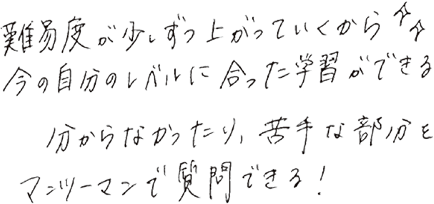 難易度が少しずつ上がっていくから☆☆
今の自分のレベルに合った学習ができる
分からなかったり、苦手な部分を
マンツーマンで質問できる!